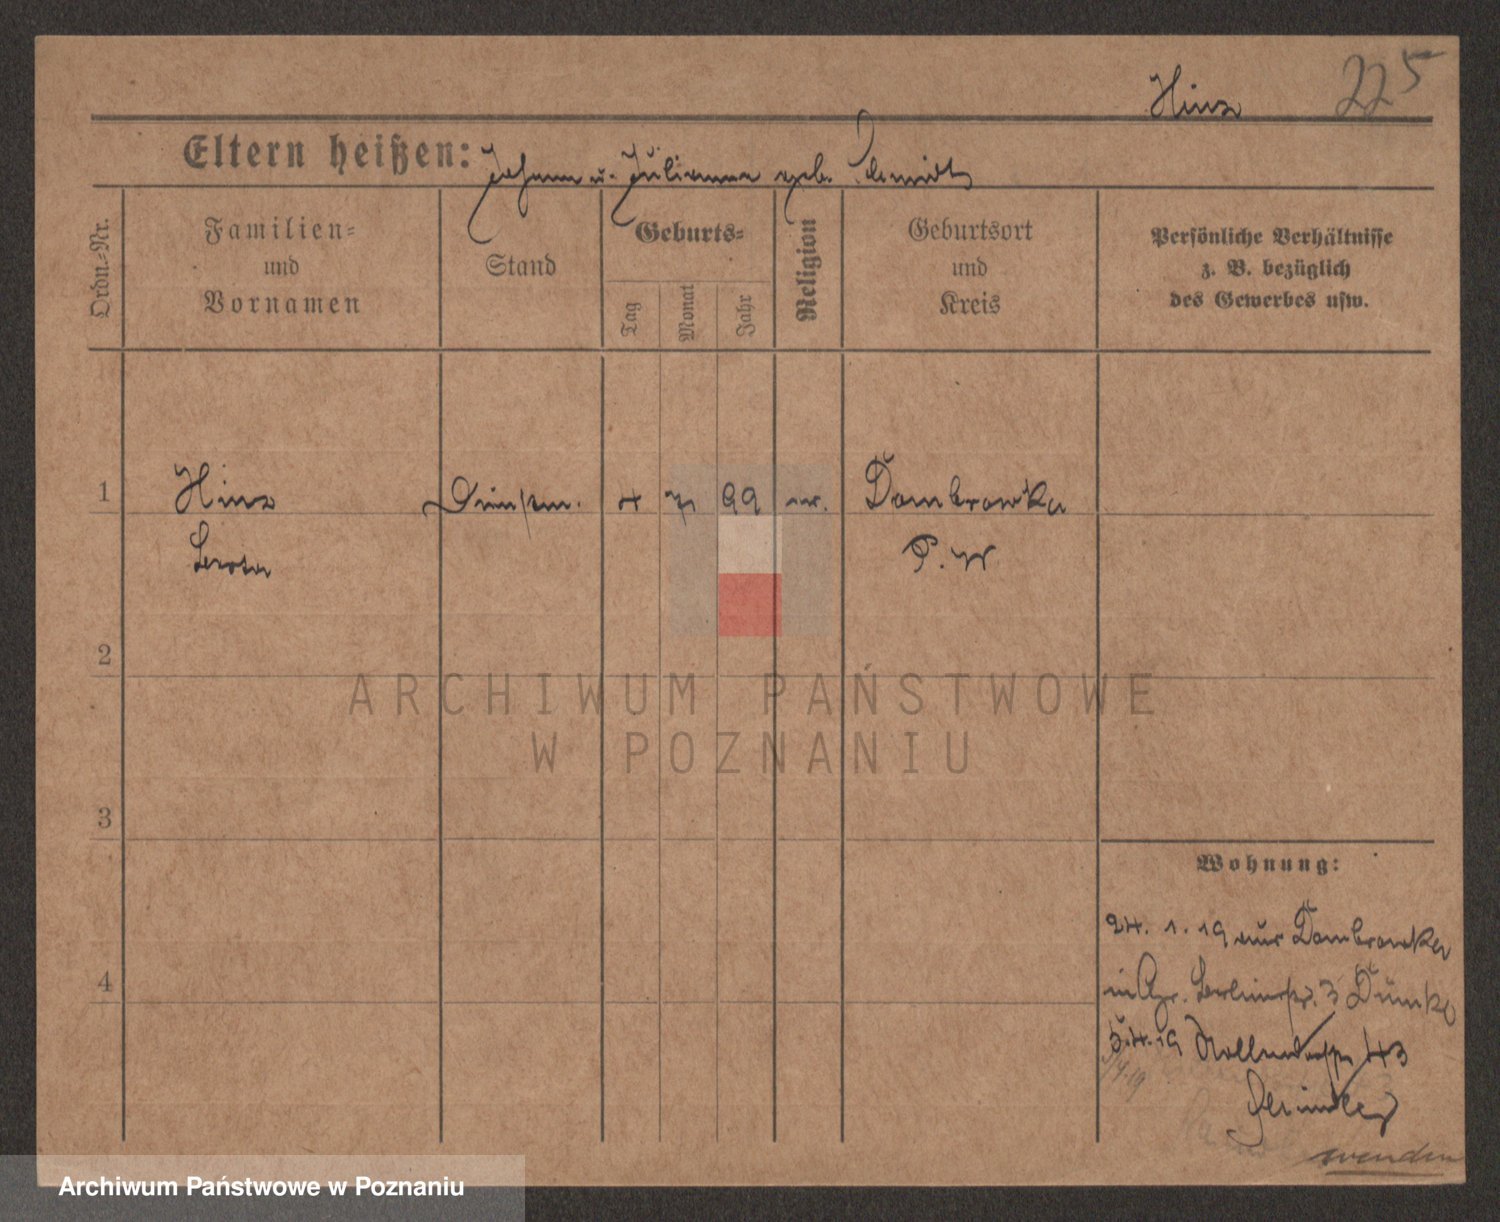 Hinz 225
Eltern heißen: Johann u. Julianna geb. Schmidt
Ordn.-Nr.
Familien-
und
Vornamen
Stand
Geburts-
Tag
Monat
Jahr
Religion
Geburtsort
und
Kreis
Persönliche Verhältnisse
z. B. bezüglich
des Gewerbes usw.
1 Hinz 4 7 99 Dombrowka
P. W
2
ARCHIWUM PAŃSTWOWE
W POZNANIU
3
Wohnung:
24. 1. 19 aus Dombrowka
4
in Berlinerstr. 3
5.4.19 43
wenden
Archiwum Państwowe w Poznaniu